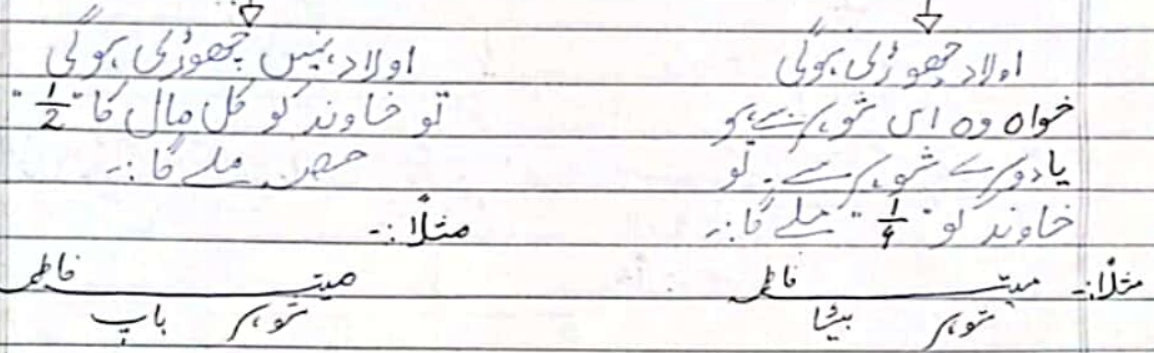 اولاد چھوڑی ہوگی
خواہ وہ اس شوہر سے ہو
یا دوسرے شوہر سے۔ تو
خاوند کو "1/4" ملے گا:۔
مثلاً:۔ میتـــ فاطمہ
شوہر بیٹا
اولاد نہیں چھوڑی ہوگی
تو خاوند کو کل مال کا "1/2"
حصہ ملے گا:۔
مثلاً:۔
میتـــ فاطمہ
شوہر باپ